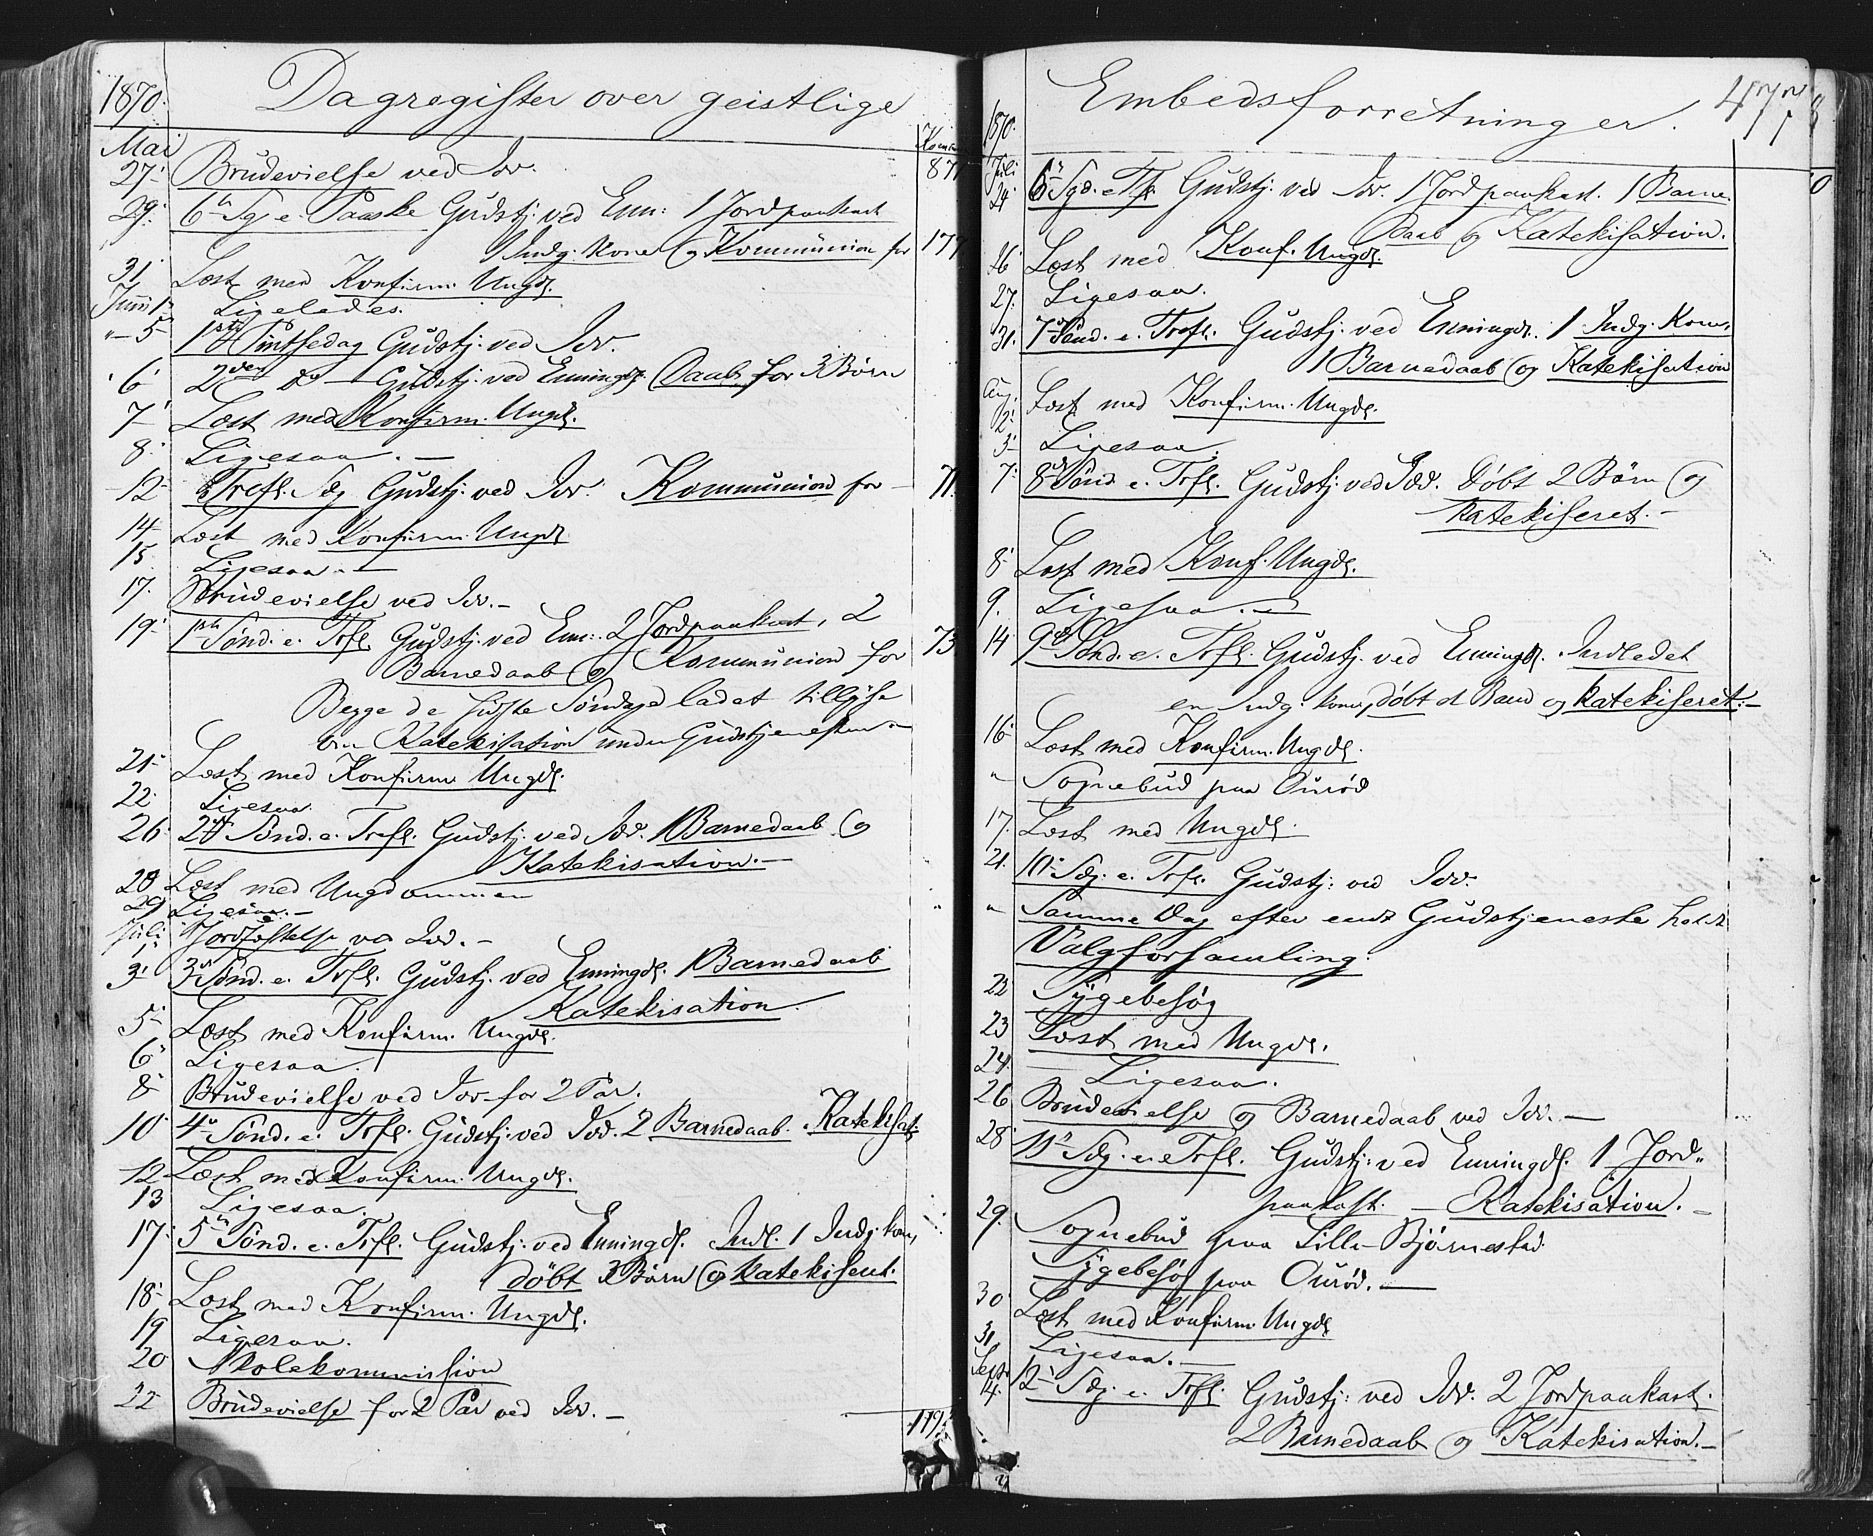 1870. Dagregister over geistlige
Mai
27. Brudevielse ved Idd. 871
29. 6te Sg. e. Paaske Gudstj. ved Enn: 1 Jordpaakast
1 Indg. Kone og Kommunion for 177
31. Læst med Konfirm. Ungd.
Juni 1. Ligeledes.
" 5 1ste Pintsedag Gudstj. ved Idd.
6 2den do — Gudstj. ved Enningd. Daab for 3 Børn
7 Læst med Konfirm. Ungd.
8. Ligesaa. —
12 Trefl. Sdg Gudstj. ved Idd. Kommunion for — 71.
14 Læst med Konfirm. Ungd
15. Ligesaa. —
17. Brudevielse ved Idd. —
19. 1ste Sønd. e. Trfl. Gudstj. ved Enn: 2 Jordpaakast, 2
Barnedaab og Kommunion for 73
Begge de sidste Søndage ladet tillyse
om Katekisation under Gudstjenesten —
21. Læst med Konfirm. Ungd.
22. Ligesaa.
26. 2den Sønd. e. Trefl. Gudstj. ved Idd. 1 Barnedaab og
Katekisation. —
28 Læst med Ungdommen
29 Ligesaa. —
Juli 1. Jordfæstelse ved Idd. —
3. 3die Sønd. e. Trfl. Gudstj. ved Enningd. 1 Barnedaab
Katekisation.
5. Læst med Konfirm. Ungd.
6. Ligesaa.
8. Brudevielse ved Idd for 2 Par.
10. 4de Sønd. e. Trfl. Gudstj. ved Idd. 2 Barnedaab. Katekisat.
12 Læst med Konfirm. Ungd.
13 Ligesaa.
17. 5te Sønd. e. Trfl. Gudstj. ved Enningd. Indl. 1 Indg. kone,
døbt 3 Børn og katekiseret.
18. Læst med Konfirm. Ungd.
19 Ligesaa.
20 Skolekommission
22 Brudevielse for 2 Par ved Idd. —
Embedsforretninger. 477
1870.
Juli
24. 6te Sgd. e. Trfl. Gudstj. ved Idd. 1 Jordpaakast. 1 Barne
Daab og Katekisation.
26. Læst med Konf. Ungd.
27. Ligesaa.
31. 7de Sønd. e. Trefl. Gudstj. ved Enningd. 1 Indg. Kone,
1 Barnedaab og Katekisation
Aug.
2. Læst med Konfirm. Ungd.
3. Ligesaa.
7. 8de Sønd. e. Trfl. Gudstj. ved Idd. Døbt 2 Børn og
katekiseret. —
8. Læst med Konf. Ungd.
9. Ligesaa. —
14 9de Sønd. e. Trfl. Gudstj. ved Enningd. Indledet
en Indg. kone, døbt et Barn og katekiseret. —
16. Læst med Konfirm. Ungd.
" Sognebud paa Ourød
17. Læst med Ungd.
21. 10. Sdg. e. Trfl. Gudstj. ved Idd.
" Samme Dag efter endt Gudstjeneste holdt
Valgforsamling.
22 Sygebesøg
23 Læst med Ungd.
24. Ligesaa.
26 Brudevielse og Barnedaab ved Idd. —
28. 11te Sdg. e. Trfl. Gudstj. ved Enningd. 1 Jord-
paakast. — Katekisation. —
29. Sognebud paa Lille-Bjørnestad
Sygebesøg paa Ourød. —
30 Læst med Konfirm. Ungd
31. Ligesaa. —
Septr
4. 12. Sdg. e. Trfl. Gudstj. ved Idd. 2 Jordpaakast.
2 Barnedaab og Katekisation. —